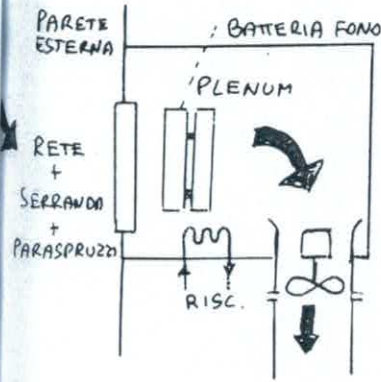 PARETE
ESTERNA
BATTERIA FONO
PLENUM
RETE
+
SERRANDA
+
PARASPRUZZI
RISC.